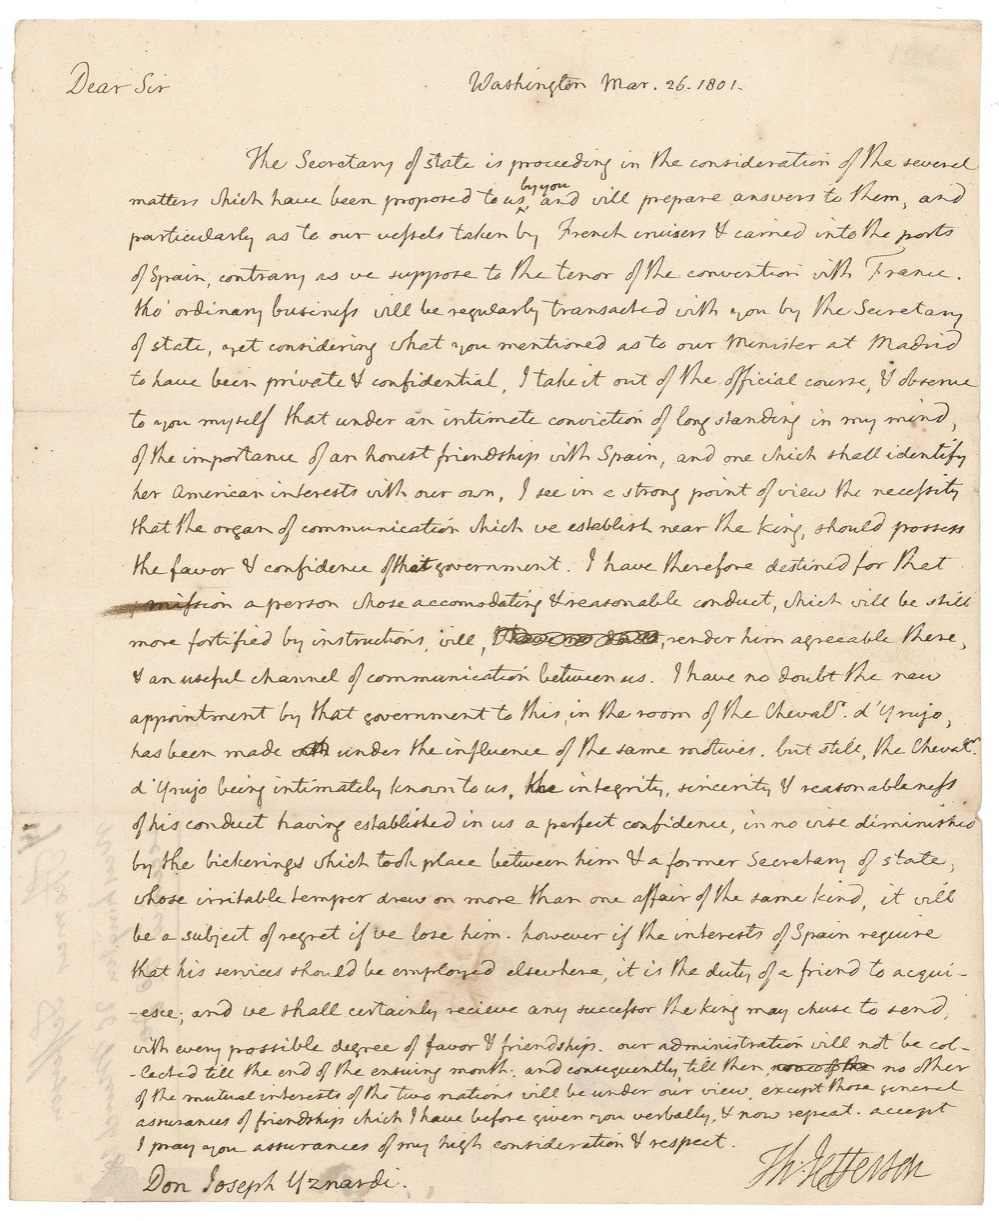 Dear Sir
Washington Mar. 26. 1801.
The Secretary of state is proceeding in the consideration of the several
matters which have been proposed to us by you, and will prepare answers to them, and
particularly as to our vessels taken by French cruisers & carried into the ports
of Spain, contrary as we suppose to the tenor of the convention with France.
tho' ordinary business will be regularly transacted with you by the Secretary
of state, yet considering what you mentioned as to our Minister at Madrid
to have been private & confidential, I take it out of the official course, & observe
to you myself that under an intimate conviction of long standing in my mind,
of the importance of an honest friendship with Spain, and one which shall identify
her American interests with our own, I see in a strong point of view the necessity
that the organ of communication which we establish near the king, should possess
the favor & confidence of that government. I have therefore destined for that
mission a person whose accomodating & reasonable conduct, which will be still
more fortified by instructions, will, render him agreeable there,
& an useful channel of communication between us. I have no doubt the new
appointment by that government to this, in the room of the Chevalr. d'Yrujo,
has been made under the influence of the same motives. but still, the Chevalr.
d'Yrujo being intimately known to us, the integrity, sincerity & reasonableness
of his conduct having established in us a perfect confidence, in no wise diminished
by the bickerings which took place between him & a former Secretary of state,
whose irritable temper drew on more than one affair of the same kind, it will
be a subject of regret if we lose him. however if the interests of Spain require
that his services should be employed elsewhere, it is the duty of a friend to acqui-
-esce; and we shall certainly recieve any successor the king may chuse to send,
with every possible degree of favor & friendship. our administration will not be col-
-lected till the end of the ensuing month: and consequently, till then, no other
of the mutual interests of the two nations will be under our view, except those general
assurances of friendship which I have before given you verbally, & now repeat. accept
I pray you assurances of my high consideration & respect.
Th: Jefferson
Don Joseph Yznardi.